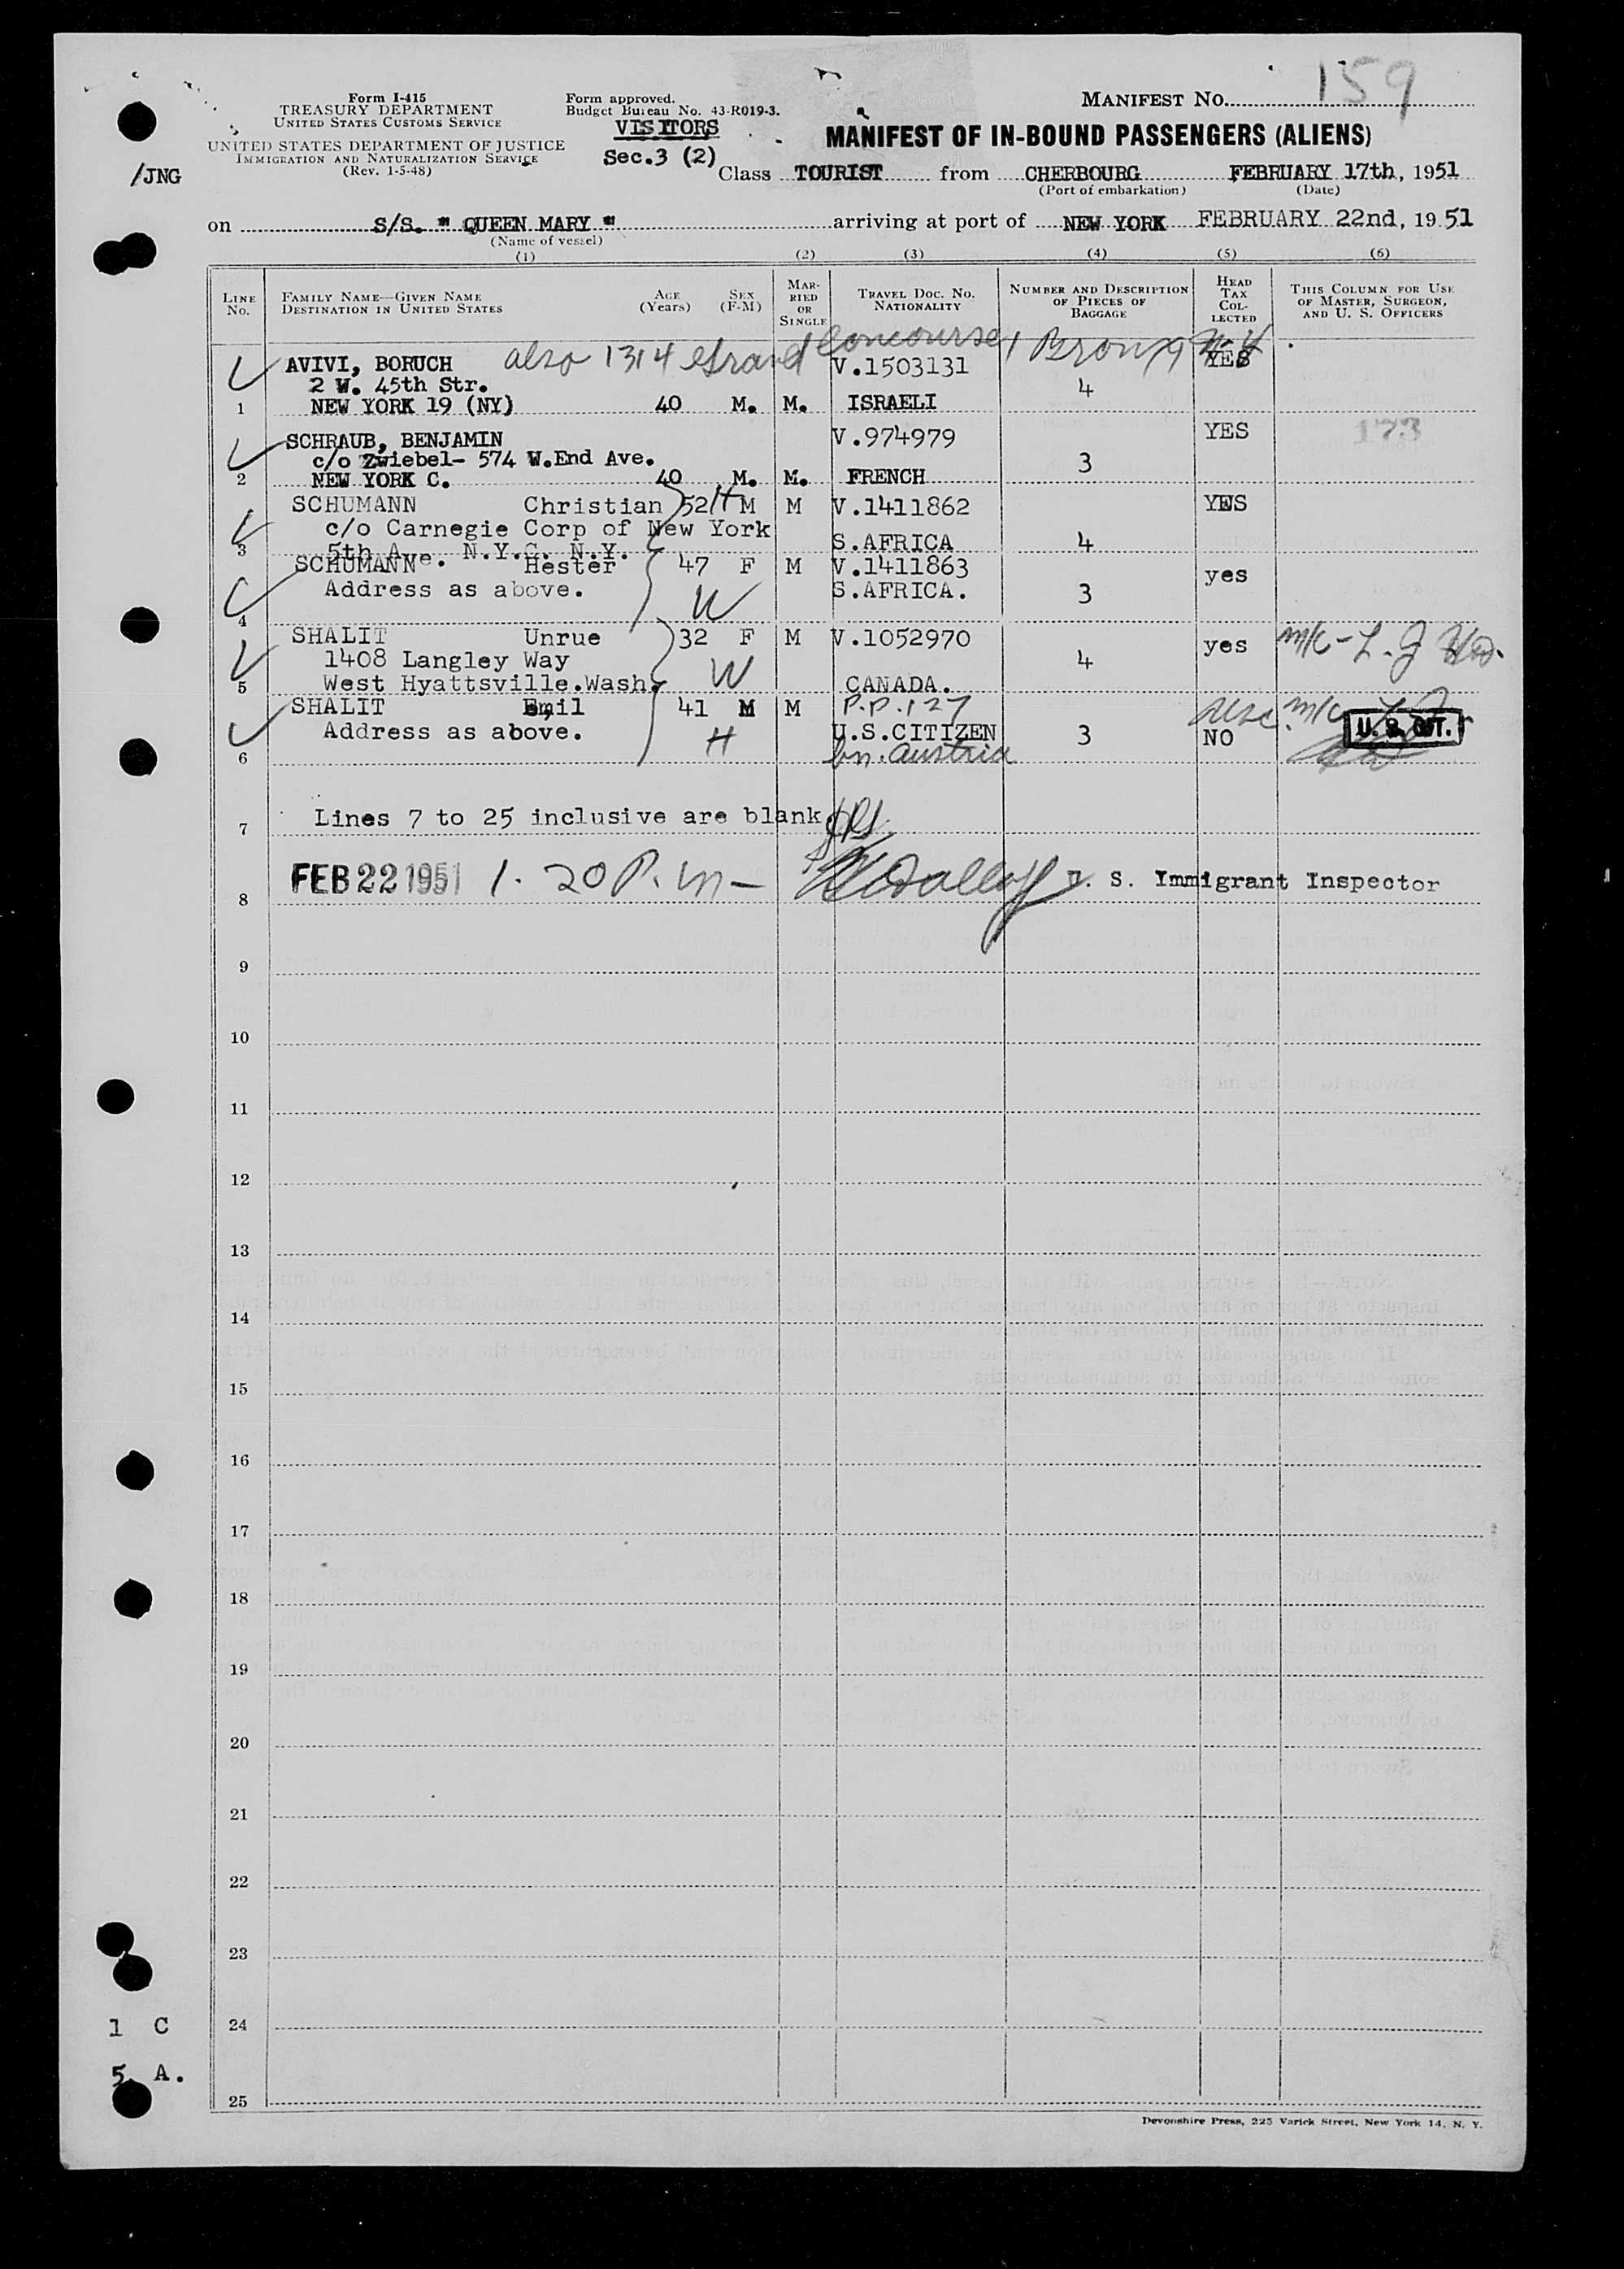 159
Form I-415
TREASURY DEPARTMENT
UNITED STATES CUSTOMS SERVICE
UNITED STATES DEPARTMENT OF JUSTICE
IMMIGRATION AND NATURALIZATION SERVICE
(Rev. 1-5-48)
/JNG
Form approved.
Budget Bureau No. 43-R019-3.
VISITORS
Sec.3 (2)
MANIFEST NO.
MANIFEST OF IN-BOUND PASSENGERS (ALIENS)
Class TOURIST from CHERBOURG FEBRUARY 17th, 1951
(Port of embarkation) (Date)
on S/S. " QUEEN MARY " arriving at port of NEW YORK FEBRUARY 22nd, 1951
(Name of vessel)
(1) (2) (3) (4) (5) (6)
LINE NO.
FAMILY NAME—GIVEN NAME
DESTINATION IN UNITED STATES
AGE (Years)
SEX (F-M)
MARRIED OR SINGLE
TRAVEL DOC. NO.
NATIONALITY
NUMBER AND DESCRIPTION OF PIECES OF BAGGAGE
HEAD TAX COLLECTED
THIS COLUMN FOR USE OF MASTER, SURGEON, AND U. S. OFFICERS
also 1314 Grand Concourse, Bronx, N.Y.
AVIVI, BORUCH V.1503131 YES
2 W. 45th Str. 4
1 NEW YORK 19 (NY) 40 M. M. ISRAELI
SCHRAUB, BENJAMIN V.974979 YES 173
c/o Zwiebel- 574 W.End Ave. 3
2 NEW YORK C. 40 M. M. FRENCH
SCHUMANN Christian 52 H M M V.1411862 YES
c/o Carnegie Corp of New York
3 5th Ave. N.Y.C. N.Y. S.AFRICA 4
SCHUMANN Hester 47 F M V.1411863 yes
Address as above. W S.AFRICA. 3
4
SHALIT Unrue 32 F M V.1052970 yes
1408 Langley Way W 4
5 West Hyattsville.Wash. CANADA.
SHALIT Emil 41 M M P.P.127
Address as above. H U.S.CITIZEN 3 NO U. S. CIT.
6 bn. Austria
7 Lines 7 to 25 inclusive are blank
8 FEB 22 1951 1.20 P.m— U. S. Immigrant Inspector
9
10
11
12
13
14
15
16
17
18
19
20
21
22
23
1 C 24
5 A.
25
Devonshire Press, 225 Varick Street, New York 14, N. Y.